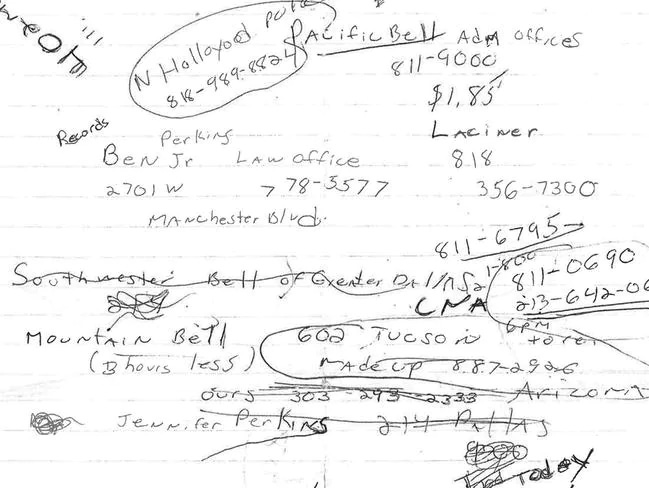 N Hollywood
818-989-8824
PACIFIC Bell ADM OFFICES
811-9000
$1.85
Laciner
818
356-7300
Records
Perkins
Ben Jr LAW OFFICE
2701 W 778-3577
MANchester Blvd.
811-6795
Southwester Bell of Greater
1-800
811-0690
213-642-06
CNA
6PM
MOUNTAIN Bell 602 Tucson
(B hours less) MADE up 887-2926
ours 303-293-2333 Arizona
Jennifer Perkins 214 DAllAS
Today